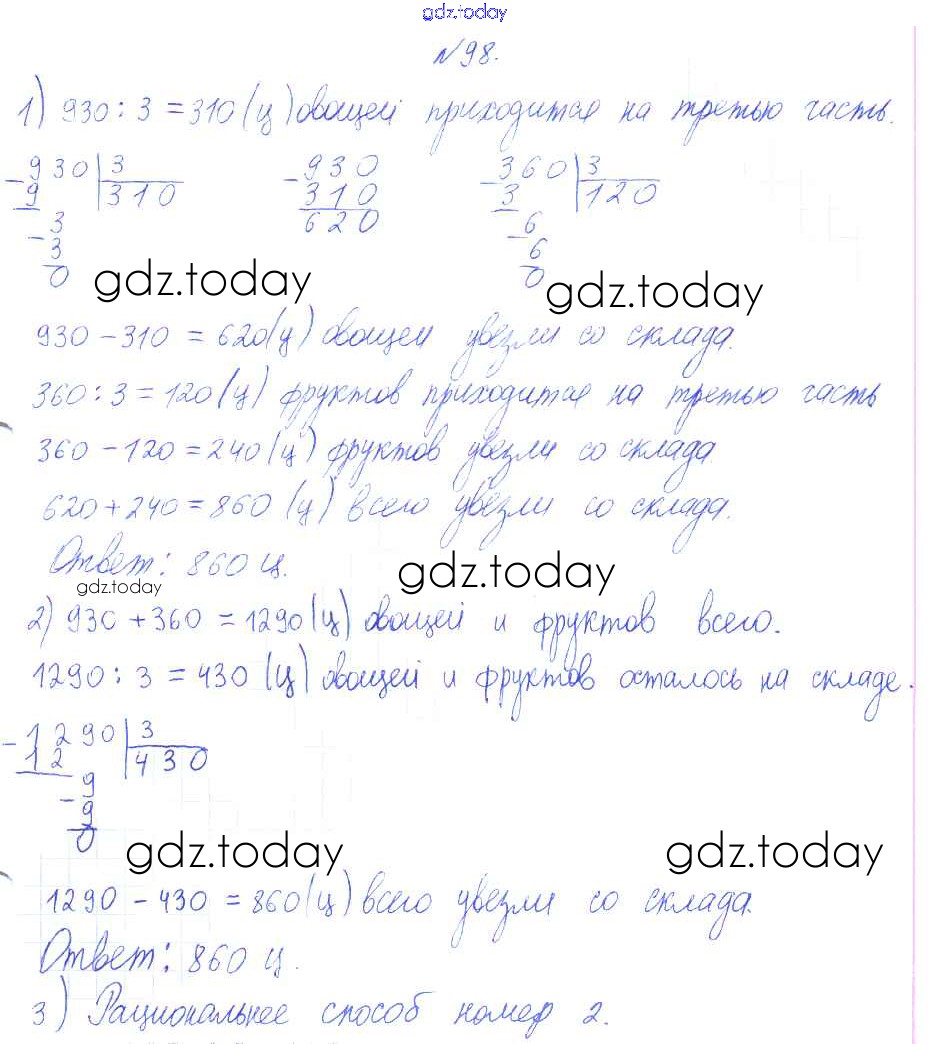 gdz.today
№98.
1) 930 : 3 = 310 (ц) овощей приходится на третью часть.
-930 | 3    -930    -360 | 3
9 | 310    310    3 | 120
-3    620    -6
3    6
0    0
gdz.today    gdz.today
930 - 310 = 620 (ц) овощей увезли со склада.
360 : 3 = 120 (ц) фруктов приходится на третью часть
360 - 120 = 240 (ц) фруктов увезли со склада
620 + 240 = 860 (ц) всего увезли со склада.
Ответ: 860 ц.
gdz.today    gdz.today
2) 930 + 360 = 1290 (ц) овощей и фруктов всего.
1290 : 3 = 430 (ц) овощей и фруктов осталось на складе.
-1290 | 3
12 | 430
-9
9
0
gdz.today    gdz.today
1290 - 430 = 860 (ц) всего увезли со склада.
Ответ: 860 ц.
3) Рациональнее способ номер 2.